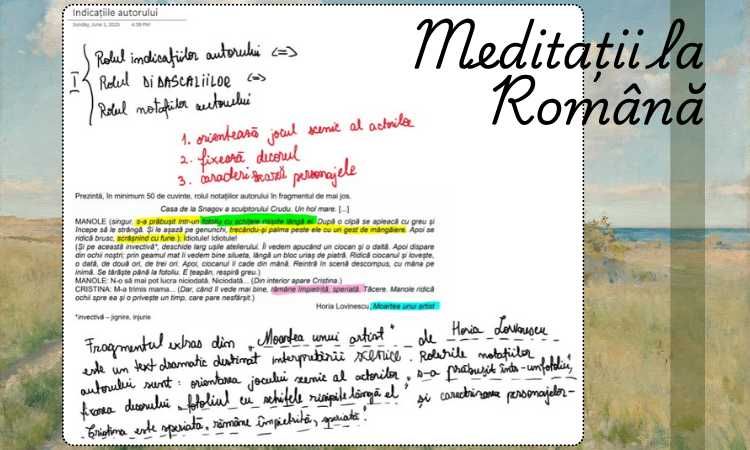 Indicațiile autorului
Sunday, June 1, 2025 4:39 PM
Meditații la
Română
I
Rolul indicațiilor autorului <=>
Rolul DIDASCALIILOR <=>
Rolul notațiilor autorului
1. orientează jocul scenic al actorilor
2. fixează decorul
3. caracterizează personajele
Prezintă, în minimum 50 de cuvinte, rolul notațiilor autorului în fragmentul de mai jos.
Casa de la Snagov a sculptorului Crudu. Un hol mare. [...]
MANOLE (singur, s-a prăbușit într-un fotoliu cu schițele risipite lângă el. După o clipă se apleacă cu greu și
începe să le strângă. Și le așază pe genunchi, trecându-și palma peste ele cu un gest de mângâiere. Apoi se
ridică brusc, scrâșnind cu furie.): Idiotule! Idiotule!
(Și pe această invectivă*, deschide larg ușile atelierului. Îl vedem apucând un ciocan și o daltă. Apoi dispare
din ochii noștri; prin geamul mat îi vedem bine silueta, lângă un bloc uriaș de piatră. Ridică ciocanul și lovește,
o dată, de două ori, de trei ori. Apoi, ciocanul îi cade din mână. Reintră în scenă descompus, cu mâna pe
inimă. Se târăște până la fotoliu. E țeapăn, respiră greu.)
MANOLE: N-o să mai pot lucra niciodată. Niciodată... (Din interior apare Cristina.)
CRISTINA: M-a trimis mama... (Dar, când îl vede mai bine, rămâne împietrită, speriată. Tăcere. Manole ridică
ochii spre ea și o privește un timp, care pare nesfârșit.)
Horia Lovinescu, Moartea unui artist
*invectivă – jignire, injurie
Fragmentul extras din „Moartea unui artist" de Horia Lovinescu
este un text dramatic destinat interpretării scenice. Rolurile notațiilor
autorului sunt: orientarea jocului scenic al actorilor „s-a prăbușit într-un fotoliu",
fixarea decorului „fotoliul cu schițele risipite lângă el" și caracterizarea personajelor-
Cristina este speriată „rămâne împietrită, speriată".